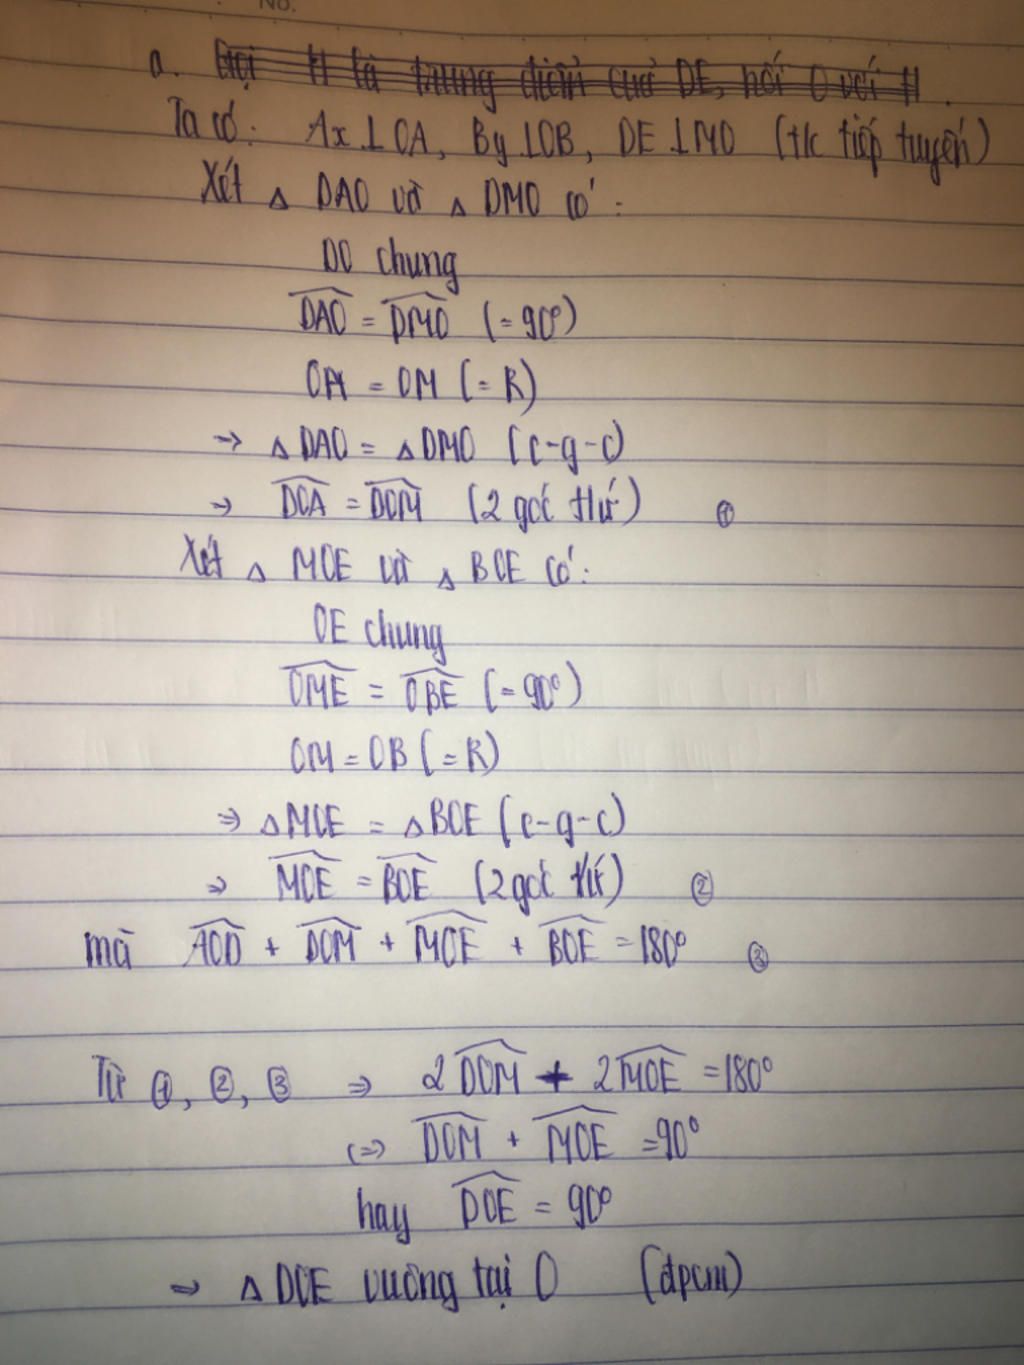 No.
a. Gọi H là trung điểm của DE, nối O với H.
Ta có: Ax ⊥ OA, By ⊥ OB, DE ⊥ MO (t/c tiếp tuyến)
Xét △ DAO và △ DMO có:
DO chung
DAO = DMO (=90°)
OA = OM (= R)
→ △ DAO = △ DMO (c-g-c)
→ DOA = DOM (2 góc tứ) ①
Xét △ MOE và △ BOE có:
OE chung
OME = OBE (=90°)
OM = OB (= R)
⇒ △ MOE = △ BOE (c-g-c)
⇒ MOE = BOE (2 góc tứ) ②
mà AOD + DOM + MOE + BOE = 180° ③
Từ ①, ②, ③ ⇒ 2 DOM + 2 MOE = 180°
(=> DOM + MOE = 90°
hay DOE = 90°
⇒ △ DOE vuông tại O (đpcm)